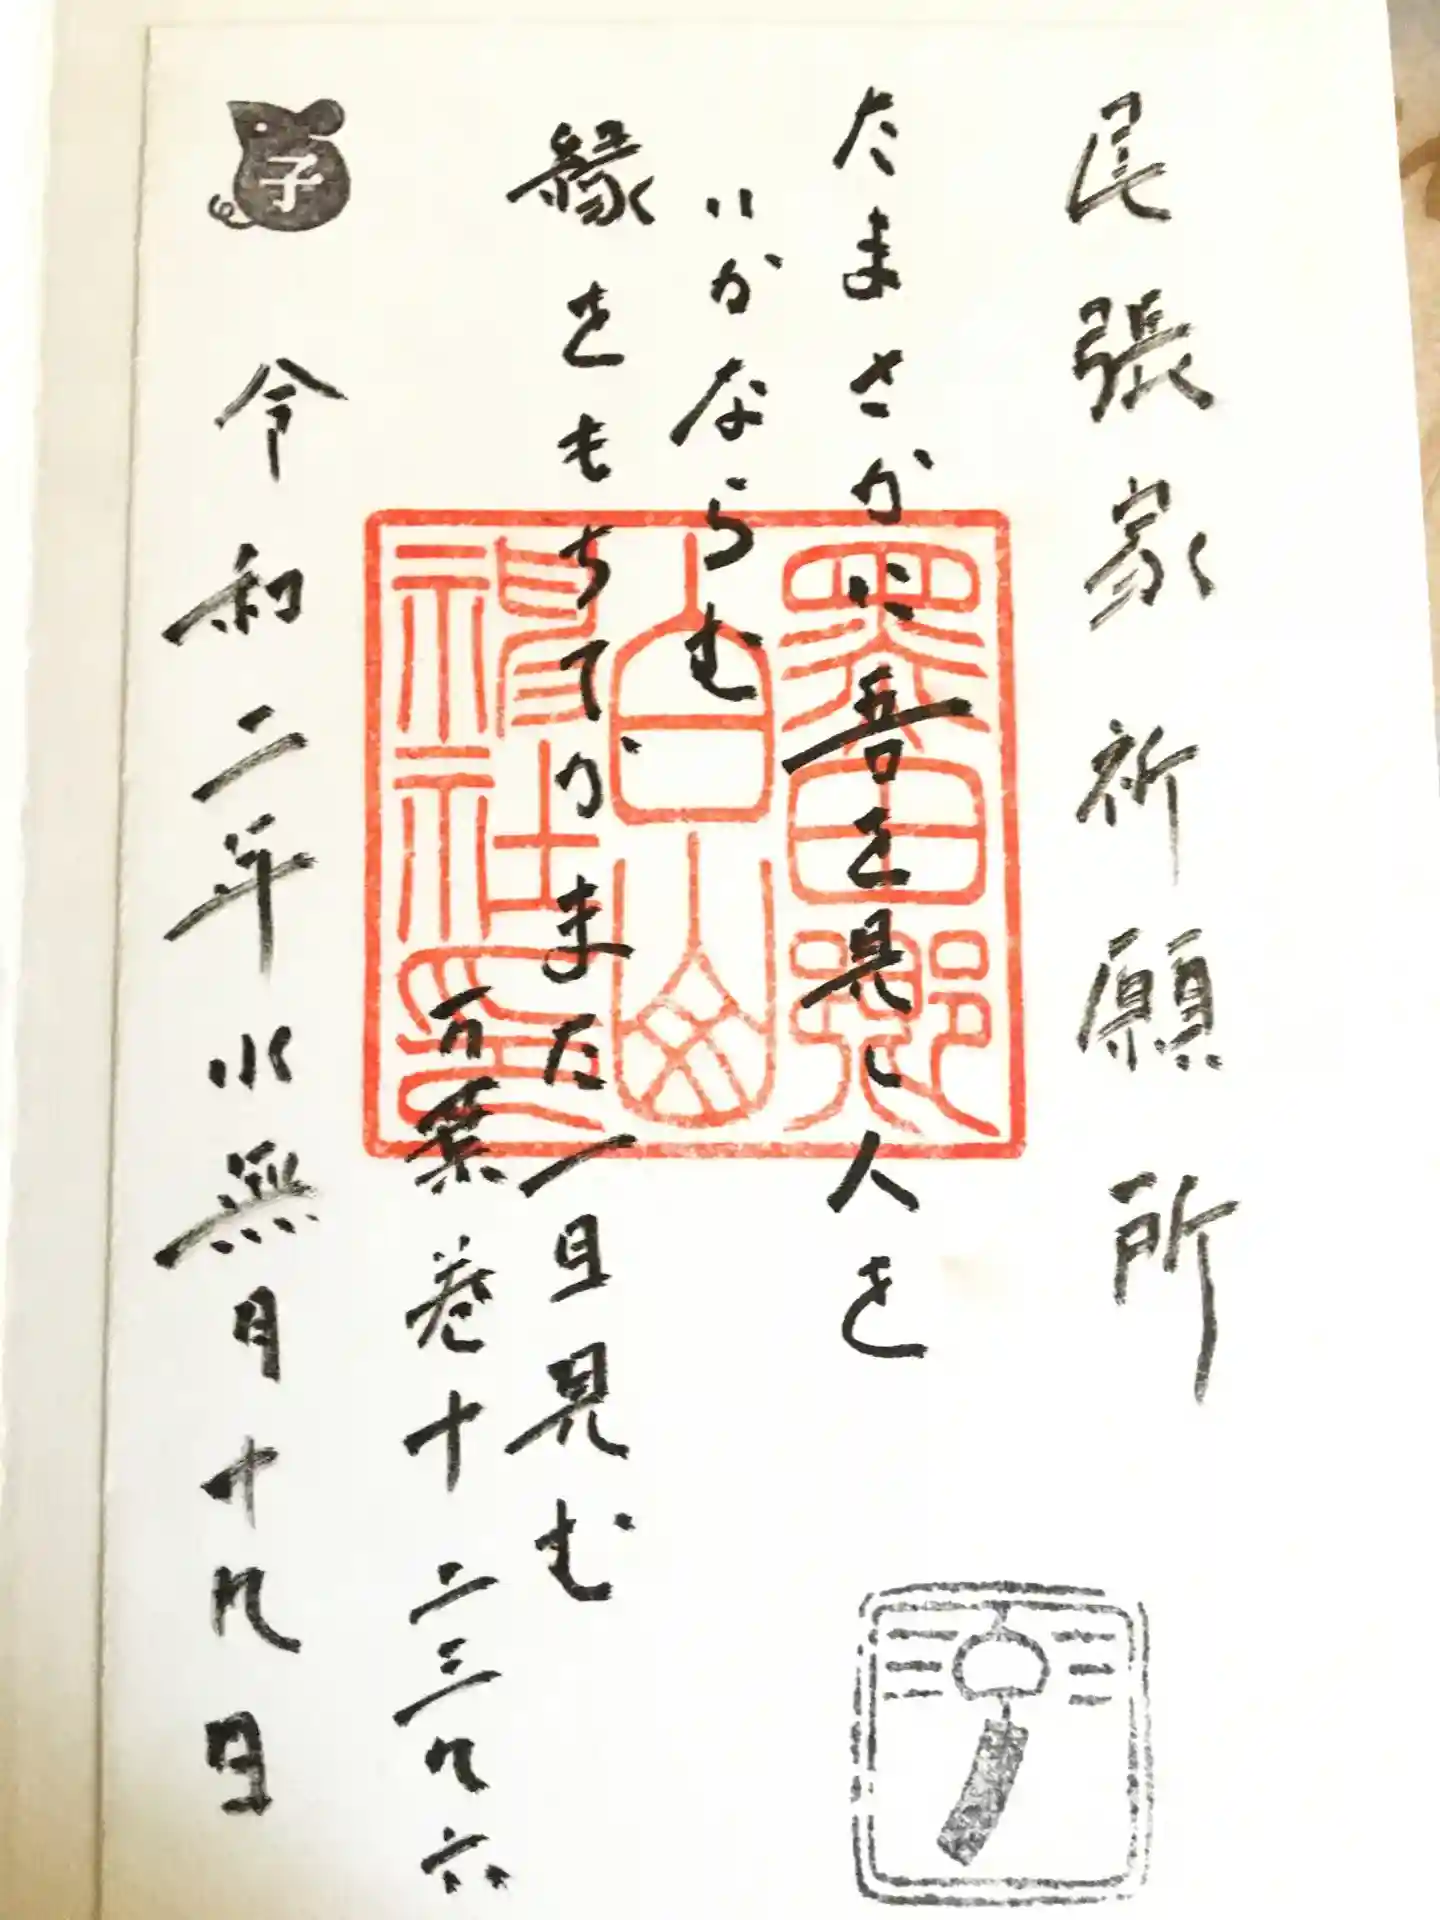 尾張家祈願所
たまさかに吾を見し人を
いかならむ
縁をもちてかまた一目見む
万葉巻十二三九六
令和二年水無月十九日
子
墨田郷
白山
神社印